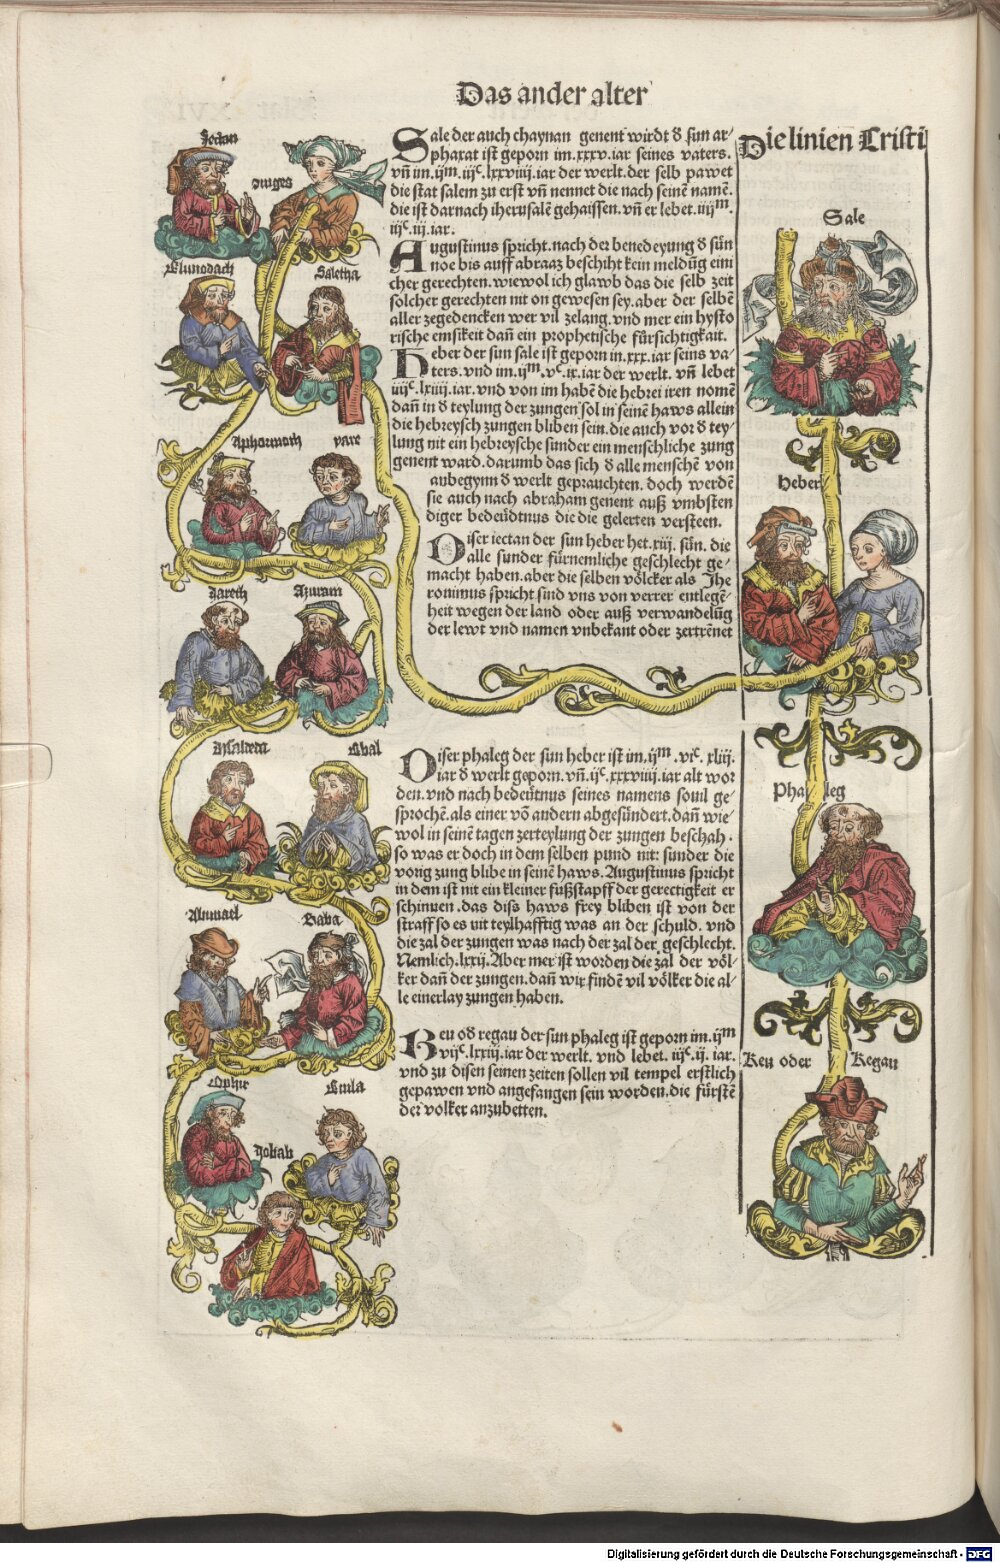 Das ander alter
Die linien Cristi
Jectan
Uxiges
Elmodach
Saletha
Aphormoth
yare
Jarech
Azuram
Ebal
Abimael
Saba
Ophir
Euila
Jobab
Sale der auch chaynan genent wirdt ď sun ar⸗
phaxat ist geporn im.xxxv.iar seines vaters.
vñ im.ijᵐ.iijᶜ.lxxviiij.iar der werlt.der selb pawet
die stat salem zu erst vñ nennet die nach seinē namē.
die ist darnach iherusalē gehaissen.vñ er lebet.iiijᵐ.
iijᶜ.iij.iar.
Augustinus spricht.nach der benedeyung ď sün
noe bis auff abraaz beschiht kein meldūg eini
cher gerechten.wiewol ich glawb das die selb zeit
solcher gerechten nit on gewesen sey.aber der selbē
aller zegedencken wer vil zelang.vnd mer ein hysto
rische emsikeit dañ ein prophetische fürsichtigkait.
Heber der sun sale ist geporn in.xxx.iar seins va⸗
ters.vnd im.ijᵐ.vᶜ.ix.iar der werlt. vñ lebet
iiijᶜ.lxiiij.iar.vnd von im habē die hebrei iren nomē
dañ in ď teylung der zungen sol in seinē haws allein
die hebreysch zungen bliben sein.die auch vor ď tey⸗
lung nit ein hebreysche sunder ein menschliche zung
genent ward.darumb das sich ď alle menschē von
anbegynn ď werlt geprauchten. doch werdē
sie auch nach abraham genent auß vmbsten
diger bedeüdtnus die die gelerten versteen.
Diser iectan der sun heber het.xiij. sün. die
alle sunder fürnemliche geschlecht ge⸗
macht haben.aber die selben völcker als Jhe
ronimus spricht sind vns von verrer entlegē⸗
heit wegen der land oder auß verwandelūg
der lewt vnd namen vnbekant oder zertrēnet
Diser phaleg der sun heber ist im.ijᵐ.viᶜ.xliij.
iar ď werlt geporn.vñ.ijᶜ.xxxviiij.iar alt wor
den.vnd nach bedeütnus seines namens souil ge⸗
sprochē.als einer vō andern abgesündert.dañ wie⸗
wol in seinē tagen zerteylung der zungen beschah.
so was er doch in dem selben pund nit: sunder die
vorig zung blibe in seinē haws.Augustinus spricht
in dem ist nit ein kleiner fußstapff der gerectigkeit er
schinuen.das diss haws frey bliben ist von der
straff so es nit teylhafftig was an der schuld. vnd
die zal der zungen was nach der zal der geschlecht.
Nemlich.lxxij.Aber mer ist worden die zal der völ⸗
ker dañ der zungen.dañ wir findē vil völker die al⸗
le einerlay zungen haben.
Reu oď regau der sun phaleg ist geporn im.ijᵐ
viijᶜ.lxxiij.iar der werlt. vnd lebet. iijᶜ.ij. iar.
vnd zu disen seinen zeiten sollen vil tempel erstlich
gepawen vnd angefangen sein worden.die fürstē
der volker anzubetten.
Sale
Heber
Phaleg
Reu oder Regau
Digitalisierung gefördert durch die Deutsche Forschungsgemeinschaft - DFG